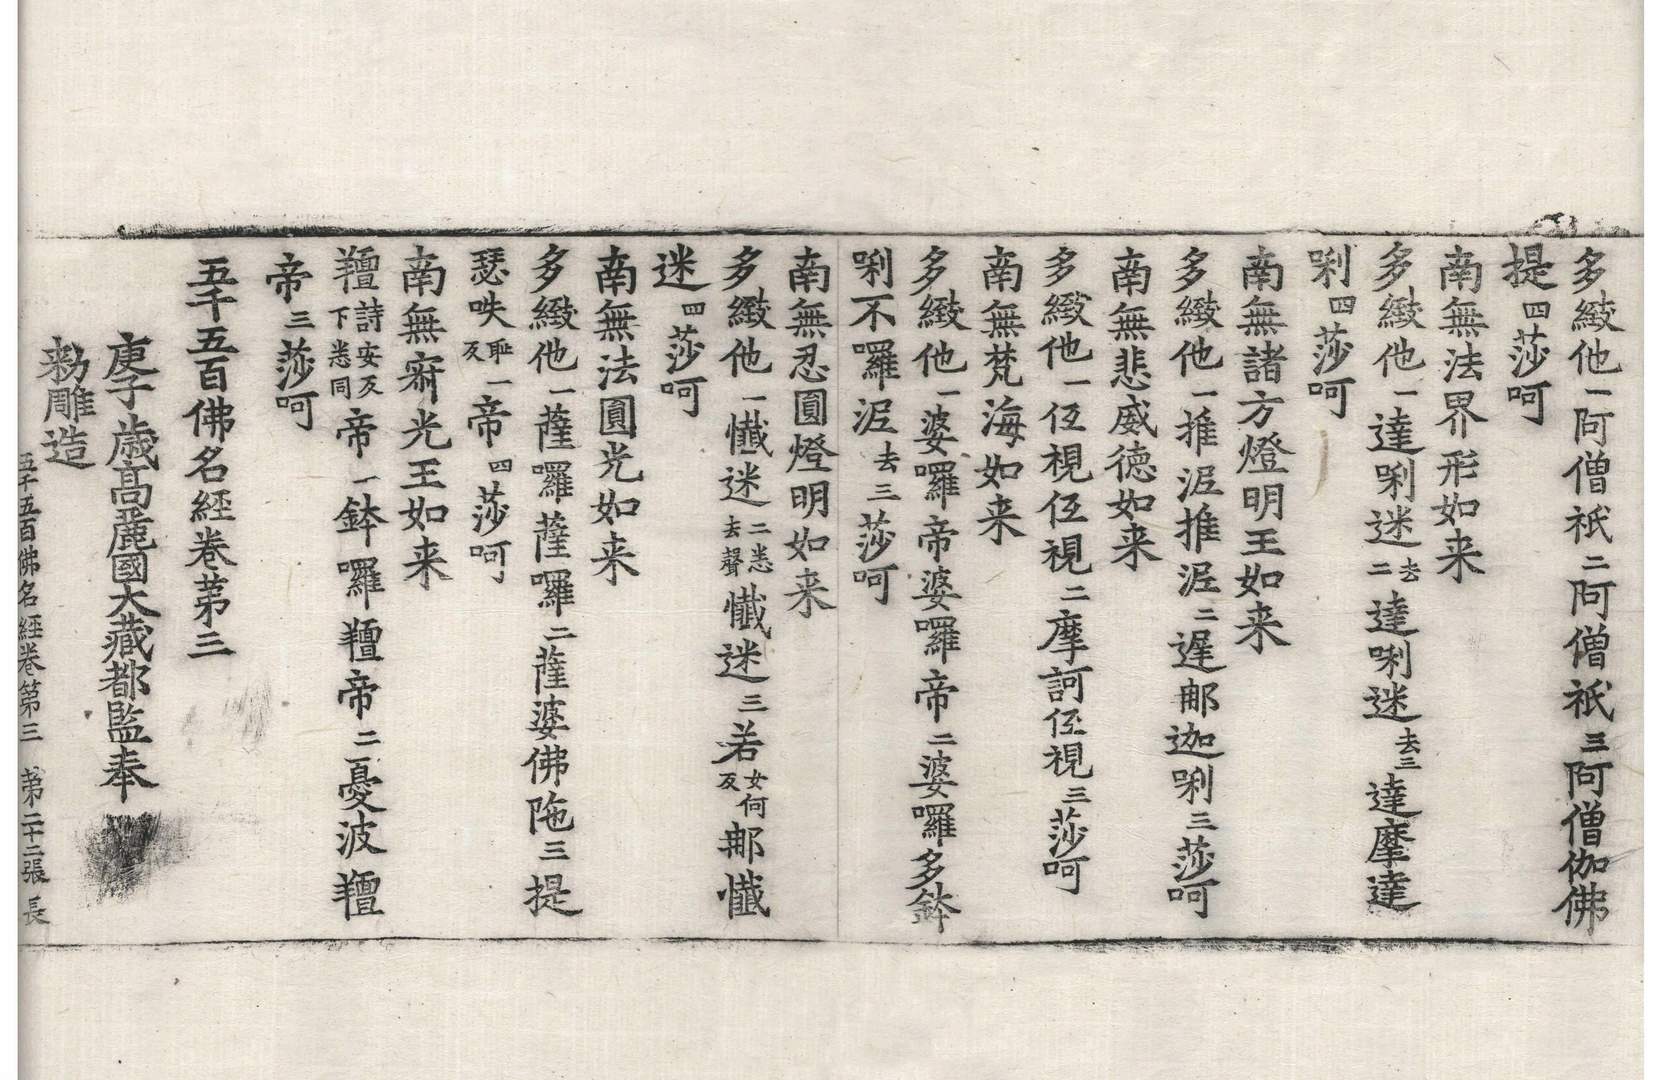 多緻他一阿僧祇二阿僧祇三阿僧伽佛
提四莎呵
南無法界形如来
多緻他一達唎迷去二達唎迷去三達摩達
唎四莎呵
南無諸方燈明王如来
多緻他一推泥推泥二遲那迦唎三莎呵
南無悲威德如来
多緻他一伍視伍視二摩訶伍視三莎呵
南無梵海如来
多緻他一婆囉帝婆囉帝二婆囉多鉢
唎不囉泥去三莎呵
南無忍圓燈明如来
多緻他一懺迷二悉去聲懺迷三若女何反那懺
迷四莎呵
南無法圓光如来
多緻他一薩囉薩囉二薩婆佛陁三提
瑟咥恥反一帝四莎呵
南無竒光王如来
羶詩安反下悉同帝一鉢囉羶帝二憂波羶
帝三莎呵
五千五百佛名經卷第三
庚子歲高麗國大藏都監奉
勑雕造
五千五百佛名經卷第三 第二十二張 長